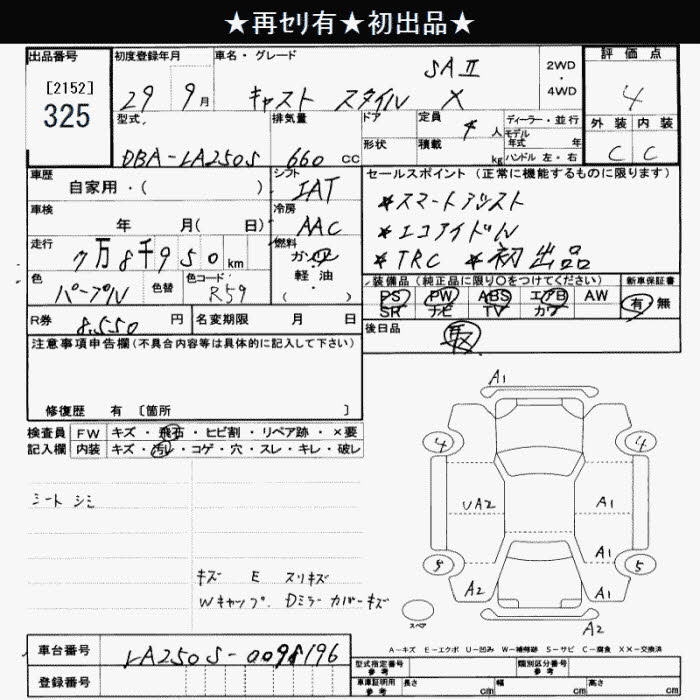 ★再セリ有★初出品★
出品番号 初度登録年月 車名・グレード 評価点
[2152]
325
29 9月 キャスト スタイル X SAⅡ
2WD
・
4WD
4
型式 排気量 ドア 定員 4人 ディーラー・並行
モデル年式 年
外装 内装
DBA-LA250S 660cc 形状 積載 kg ハンドル 左・右 C C
車歴 シフト セールスポイント(正常に機能するものに限ります)
自家用・( ) IAT
★スマートアシスト
車検 冷房
年 月( 日) AAC
★エコアイドル
走行 7万8千950km 燃料 ガソリン 軽油・( )
★TRC ★初出品
色 パープル 色替 色コード R59
装備品(純正品に限り○をつけてください) 新車保証書
PS PW ABS エアB AW 有・無
SR ナビ TV カワ
R券 8,550円 名変期限 月 日
後日品 取
注意事項申告欄(不具合内容等は具体的に記入して下さい)
修復歴 有 〔箇所 〕
検査員 FW キズ・飛石・ヒビ割・リペア跡・×要
記入欄 内装 キズ・汚れ・コゲ・穴・スレ・キレ・破レ
シート シミ
キズ E スリキズ
Wキャップ Dミラー カバーキズ
A1
4 4
UA2 A1
A1
9 5
A2 A1
スペア
A2
A-キズ E-エクボ U-凹み W-補修跡 S-サビ C-腐食 XX-交換済
車台番号 LA250S-0098196
登録番号
型式指定番号 参考 類別区分番号 参考
車庫証明用 参考 長さ cm 幅 cm 高さ cm